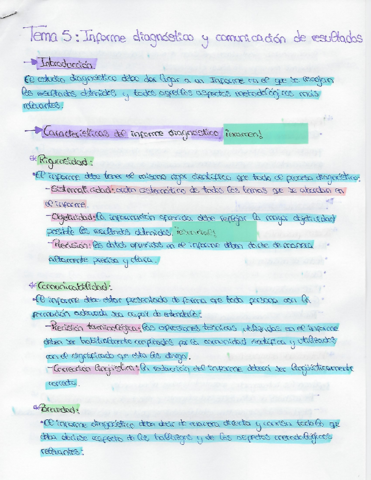 Tema 5: Informe diagnóstico y comunicación de resultados
Introducción
El estudio diagnóstico debe dar lugar a un Informe en el que se recojan
los resultados obtenidos y todos aquellos aspectos metodológicos más
relevantes.
Características del informe diagnóstico ¡examen!
Rigurosidad:
El informe debe tener el mismo rigor científico que todo el proceso diagnóstico.
- Sistematicidad: orden sistemático de todos los temas que se abordan en
el informe.
- Objetividad: la información aportada debe reflejar la mayor objetividad
posible los resultados obtenidos.
- Precisión: los datos aportados en el informe deben darse de manera
altamente precisa y clara.
Comunicabilidad:
El informe debe estar presentado de forma que toda persona con la
formación adecuada sea capaz de entenderlo:
- Precisión terminológica: las expresiones técnicas utilizadas en el informe
deben ser habitualmente empleadas por la comunidad científica y utilizadas
con el significado que esta les otorga.
- Corrección lingüística: la redacción del informe deberá ser lingüísticamente
correcta.
Brevedad:
El informe diagnóstico debe decir de manera directa y concisa todo lo que
deba decirse respecto de los hallazgos y de los aspectos metodológicos
relevantes.